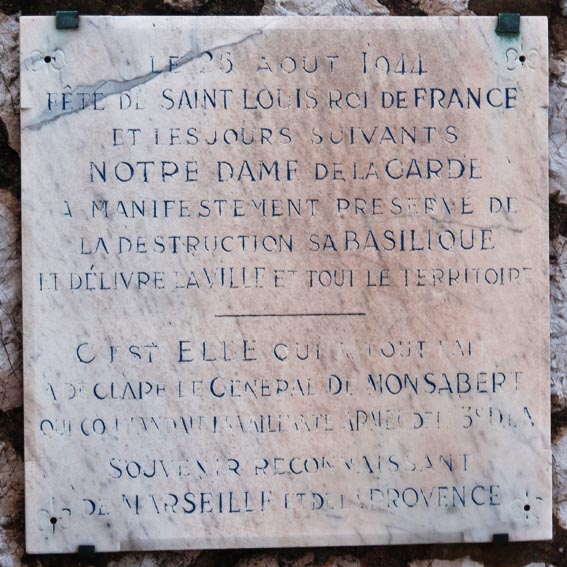 LE 25 AOUT 1944
FÊTE DE SAINT LOUIS ROI DE FRANCE
ET LES JOURS SUIVANTS
NOTRE DAME DE LA GARDE
A MANIFESTEMENT PRESERVE DE
LA DESTRUCTION SA BASILIQUE
ET DÉLIVRE LA VILLE ET TOUT LE TERRITOIRE
C'EST ELLE QUI A TOUT FAIT
A DECLARE LE GENERAL DE MONSABERT
QUI COMMANDAIT LA VAILLANTE ARMEE DE LA 3e D.I.A
SOUVENIR RECONNAISSANT
DE MARSEILLE ET DE LA PROVENCE